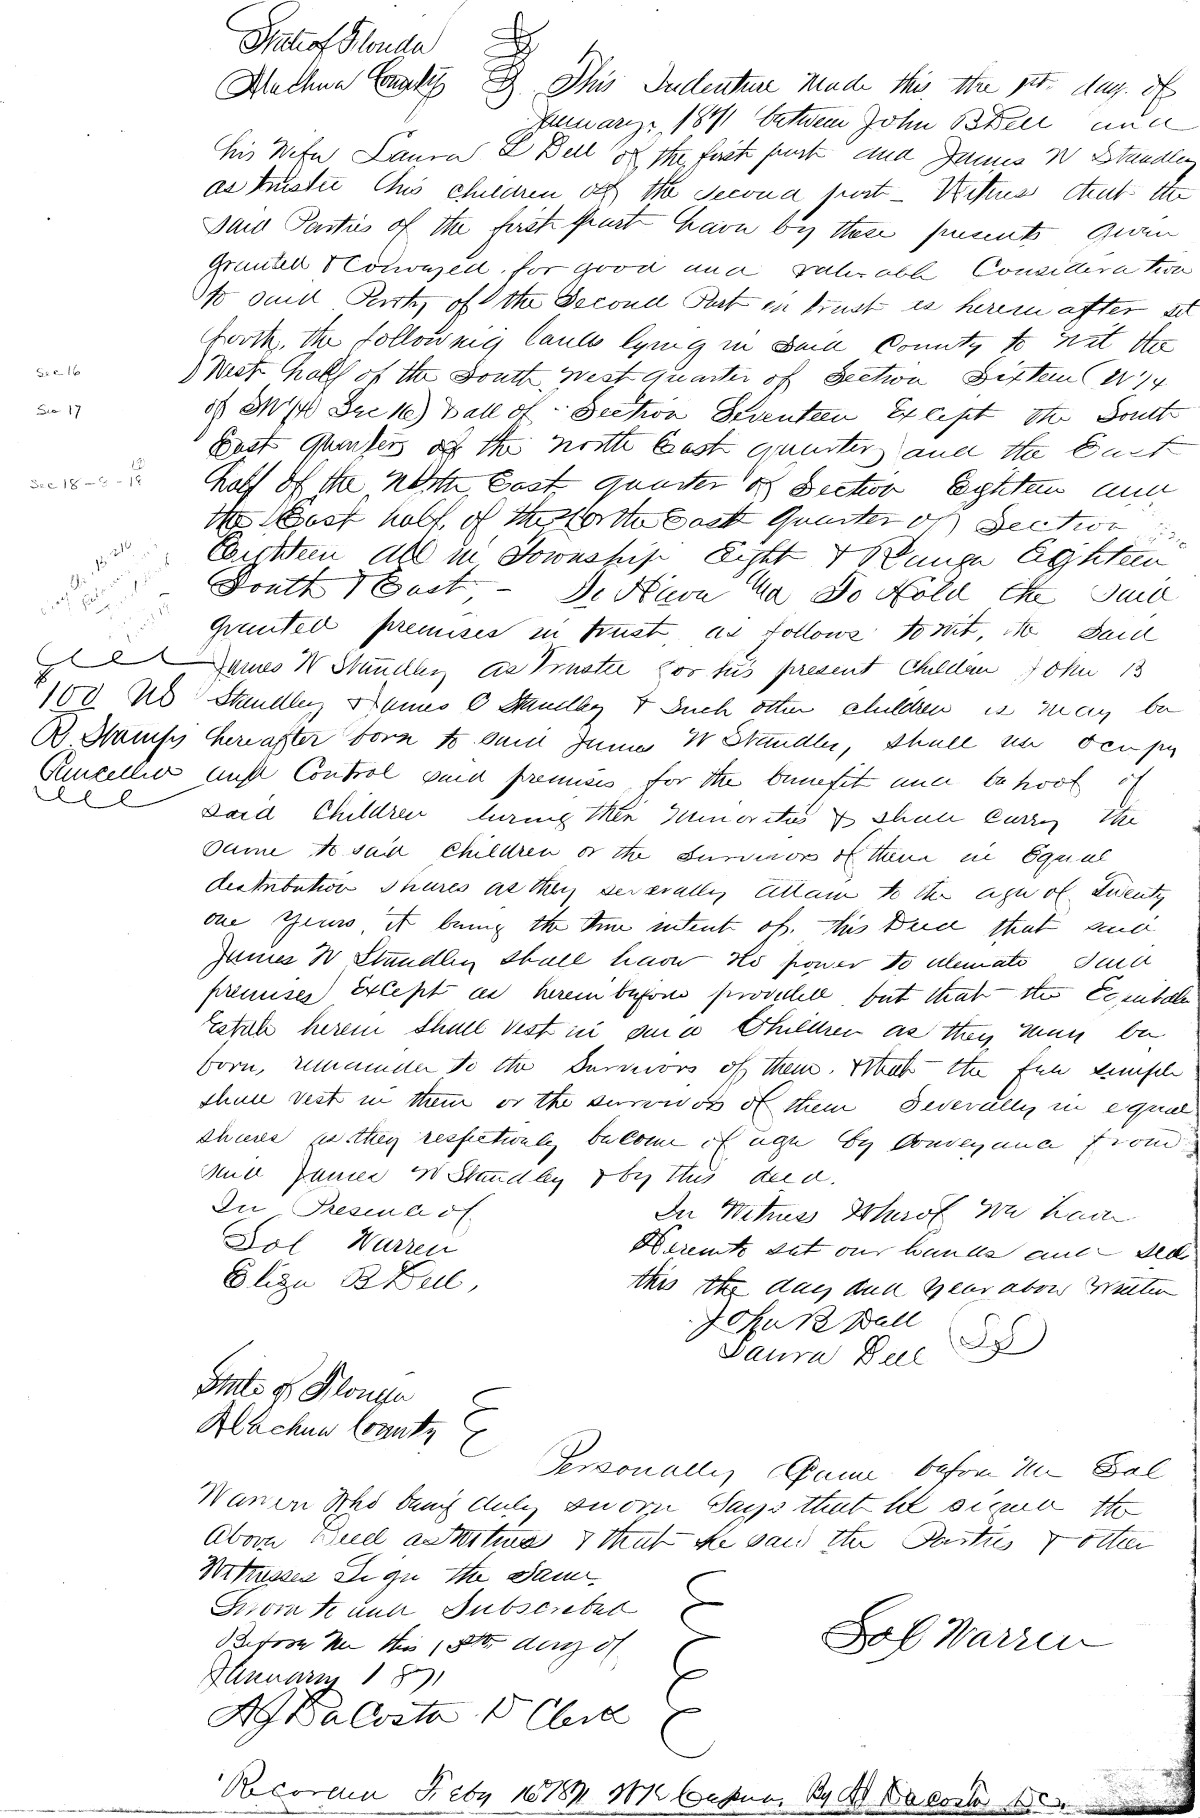 State of Florida
Alachua County This Indenture Made this the 1st day of
January, 1871 between John B Dell and
his Wife Laura L Dell of the first part and James W Standley
as trustee his children of the second part - Witness that the
said Parties of the first part have by these presents given
granted & Conveyed for good and valuable Consideration
to said Party of the Second Part in trust as herein after set
forth, the following lands lying in said County to wit the
Sec 16
West half of the South West quarter of Section Sixteen (W 1/4
Sec 17
of SW 1/4 Sec 16) & all of Section Seventeen Except the South
East Quarter of the North East quarter, and the East
Sec 18 - 8 - 18
half of the North East quarter of Section Eighteen and
the East half of the North East Quarter of Section
Eighteen all in Township Eight & Range Eighteen
South & East, - To Have and To Hold the said
granted premises in trust as follows towit, the said
James W Standley as Trustee for his present Children John B
$100 US
Standley & James O Standley & such other children as may be
R Stamps
hereafter born to said James W Standley, shall use occupy
Cancelled
and Control said premises for the benefit and behoof of
said Children during their minorities & shall carry the
same to said children or the survivors of them in Equal
distribution shares as they severally attain to the age of Twenty
one years, it being the true intent of this Deed that said
James W Standley shall have no power to alienate said
premises Except as hereinbefore provided but that the Equitable
Estate herein shall vest in said Children as they may be
born, remainder to the Survivors of them. & that the fee simple
shall vest in them or the survivors of them Severally in equal
shares as they respectively become of age by Conveyance from
said James W Standley & by this deed.
In Presence of
Sol Warren
Eliza B Dell,
In Witness Wherof We have
Hereunto set our hands and seal
this the day and year above written
John B Dell
Laura Dell
State of Florida
Alachua County
Personally Came before me Sol
Warren Who being duly sworn Says that he signed the
above Deed as Witness & that he saw the Parties & other
Witnesses Sign the Same.
Sworn to and Subscribed
Before me this 18th day of
January 1871
A J DaCosta D Clerk
Sol Warren
Recorded Feby 16 1871 By A J DaCosta DC.